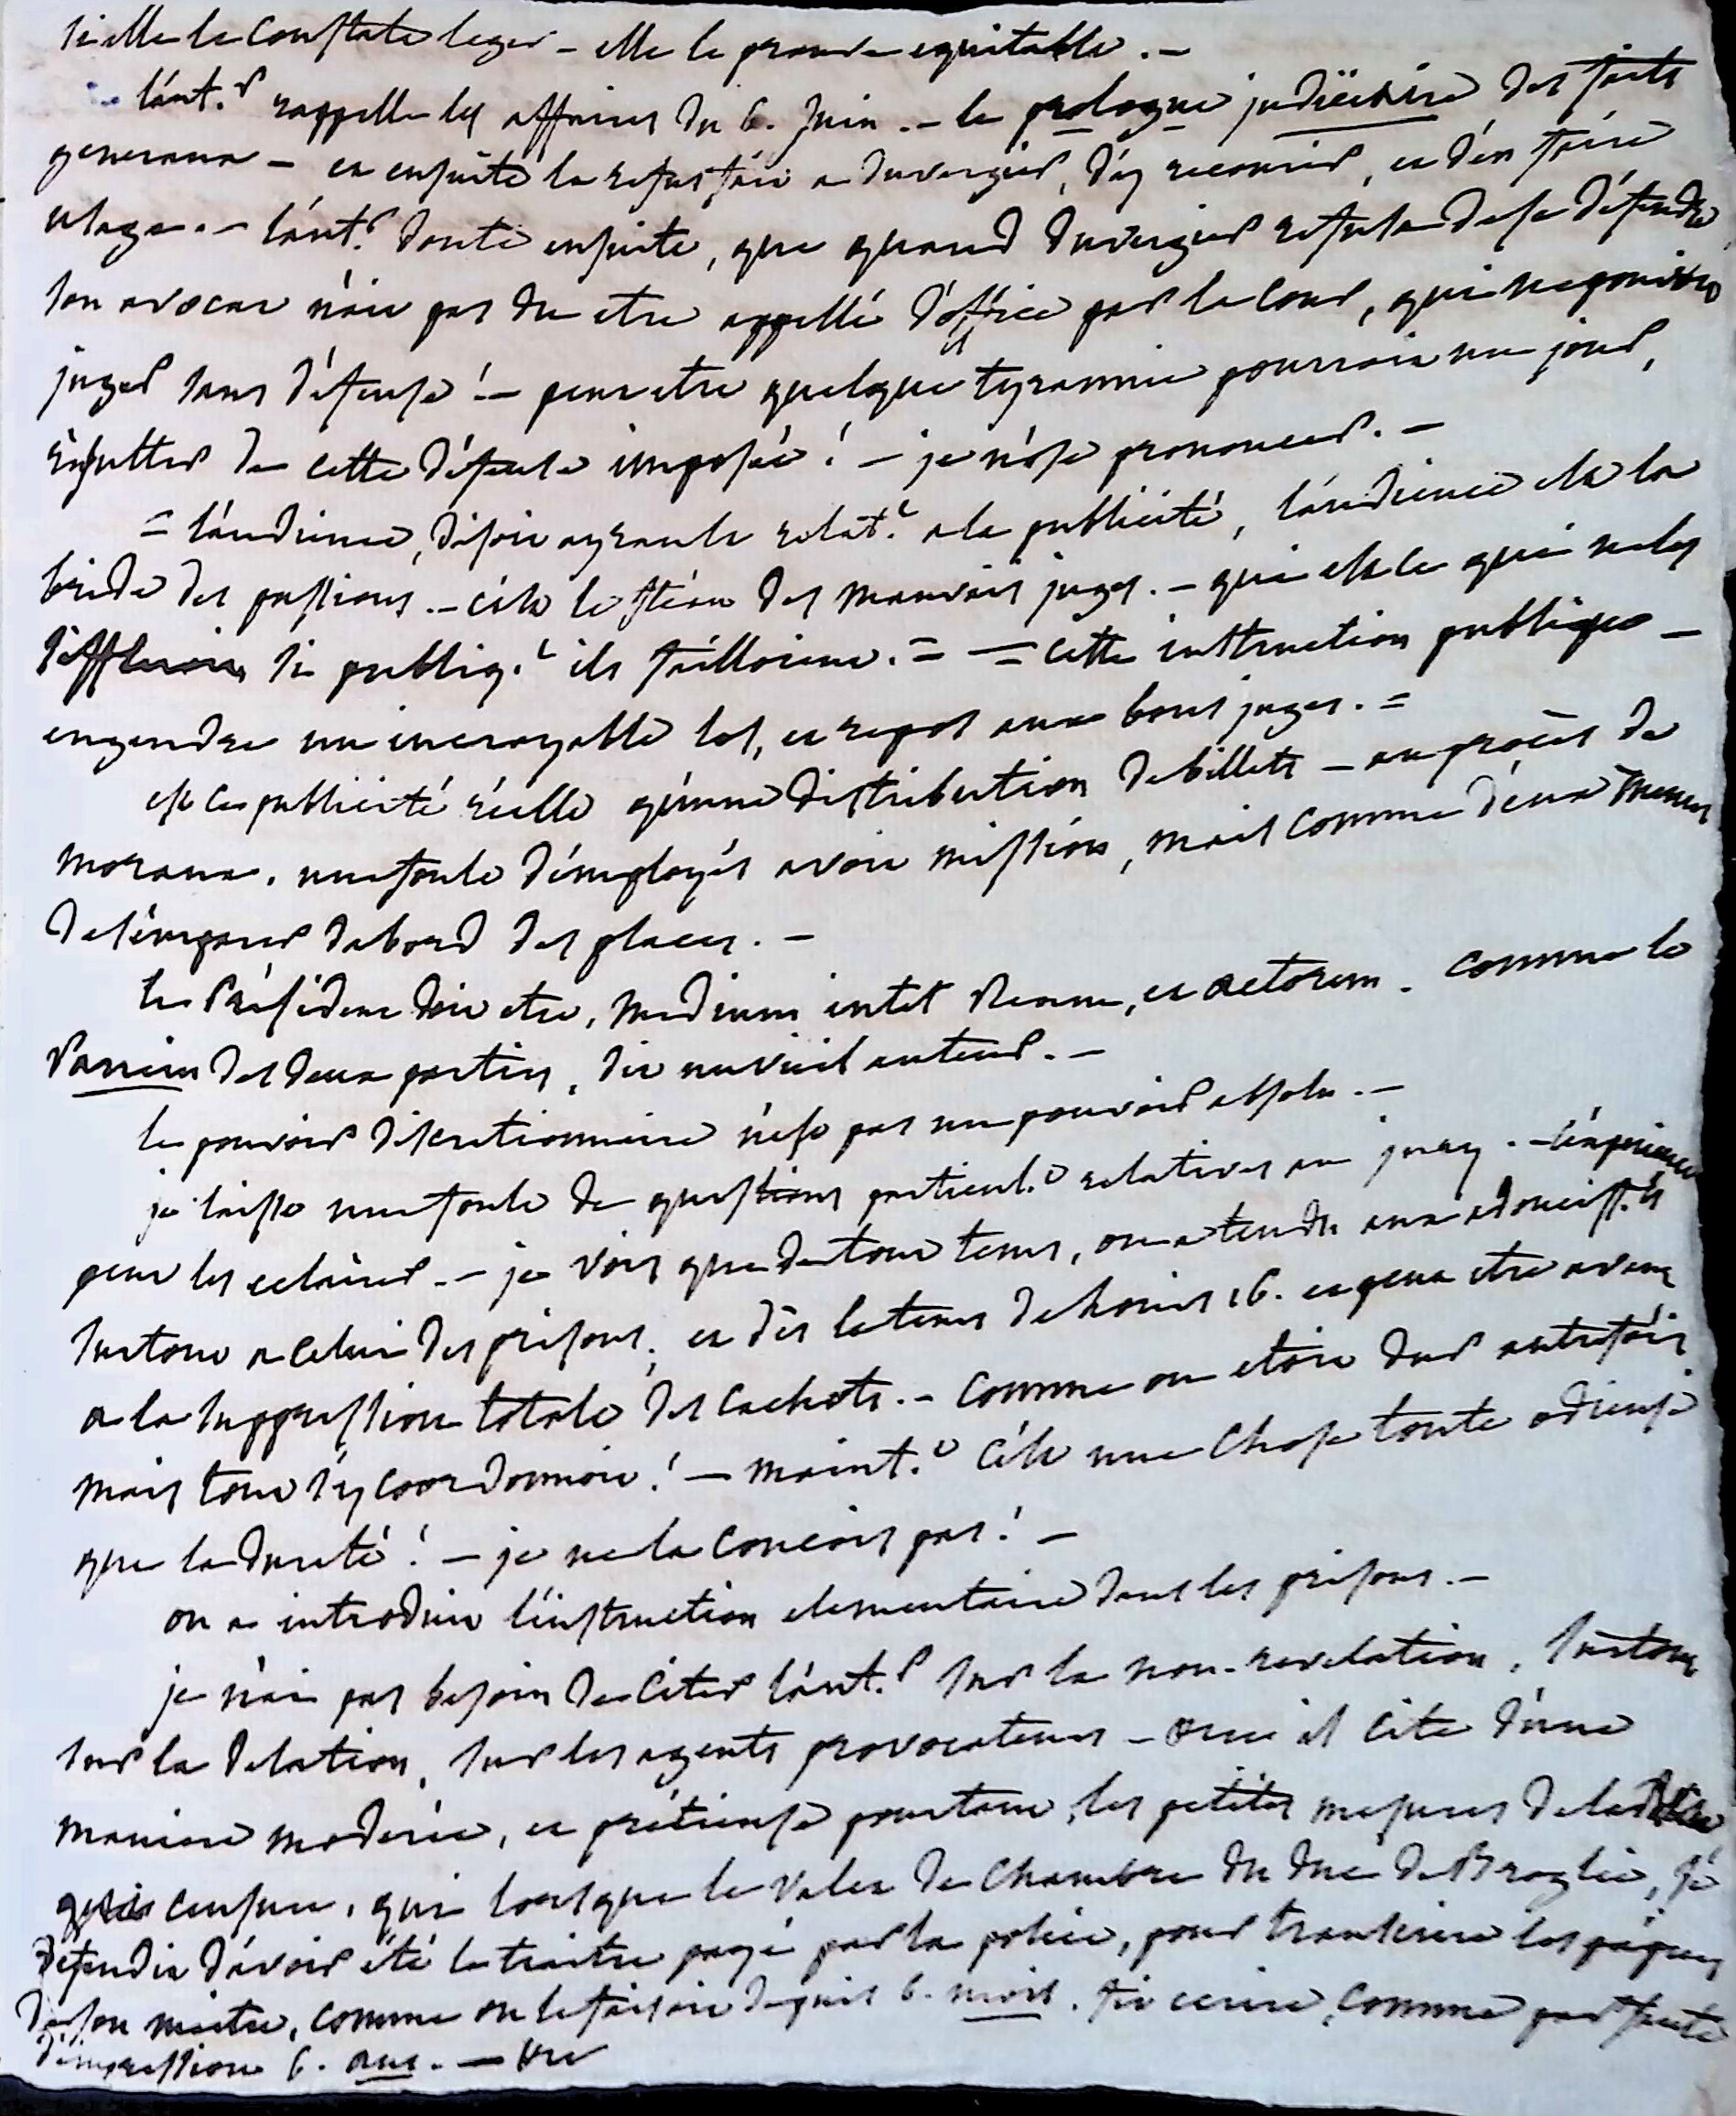 si elle le constate leger – elle le prouve equitable. –
l'aut.r rappelle les affaires du 6. Juin. – le prologue judiciaire des faits
generaux – et ensuite le refus fait a duvergier, d'y recourir, et d'en faire
usage. – l'aut.r doute ensuite, que quand duvergier refusa de se défendre
son avocat n'ait pas du etre appellé d'office par la cour, qui ne pouvoit
juger sans défense ! – peut etre quelque tyrannie pourroit un jour,
résulter de cette défense imposée ! – je n'ose prononcer. –
= l'audience, disoit ayrault relat.t a la publicité, l'audience est la
bride des passions. – c'est le fléau des mauvais juges. – qui est ce qui ne les
siffleroit si publiq.t ils failloient. = – = cette instruction publique –
engendre un incroyable los, et repos aux bons juges. =
est ce publicité réelle qu'une distribution de billets – au procès de
moreau. une foule d'employés avoit mission, mais comme d'eux memes
de s'emparer d'abord des places. –
le Président doit etre, medium inter Reum, et actorem. comme le
Parrain des deux parties, dit un vieil auteur. –
le pouvoir discretionnaire n'est pas un pouvoir absolu. –
je laisse une foule de questions particul.s relatives au jury. – l'expérience
peut les eclairer. – je vois que de tout tems, on a tendu aux adouciss.ts
surtout a celui des prisons, et dès le tems de Louis 16. et peut etre avant
a la suppression totale des cachots. – comme on etoit dur autrefois
mais tout s'y coordonnoit ! – maint.t c'est une chose toute odieuse
que la dureté ! – je ne la concois pas ! –
on a introduit l'instruction elementaire dans les prisons. –
je n'ai pas besoin de citer l'aut.r sur la non-revelation, surtout
sur la delation, sur les agents provocateurs – il cite d'une
maniere moderée, et précieuse pourtant, les petites mesures de la
censure, qui lorsque le valet de chambre du duc de Broglie, se
défendit d'avoir été le traitre payé par la police, pour transcrire les papiers
de son maitre, comme on le faisoit depuis 6. mois. fit ecrire, comme par faute
d'impression 6. ans. –